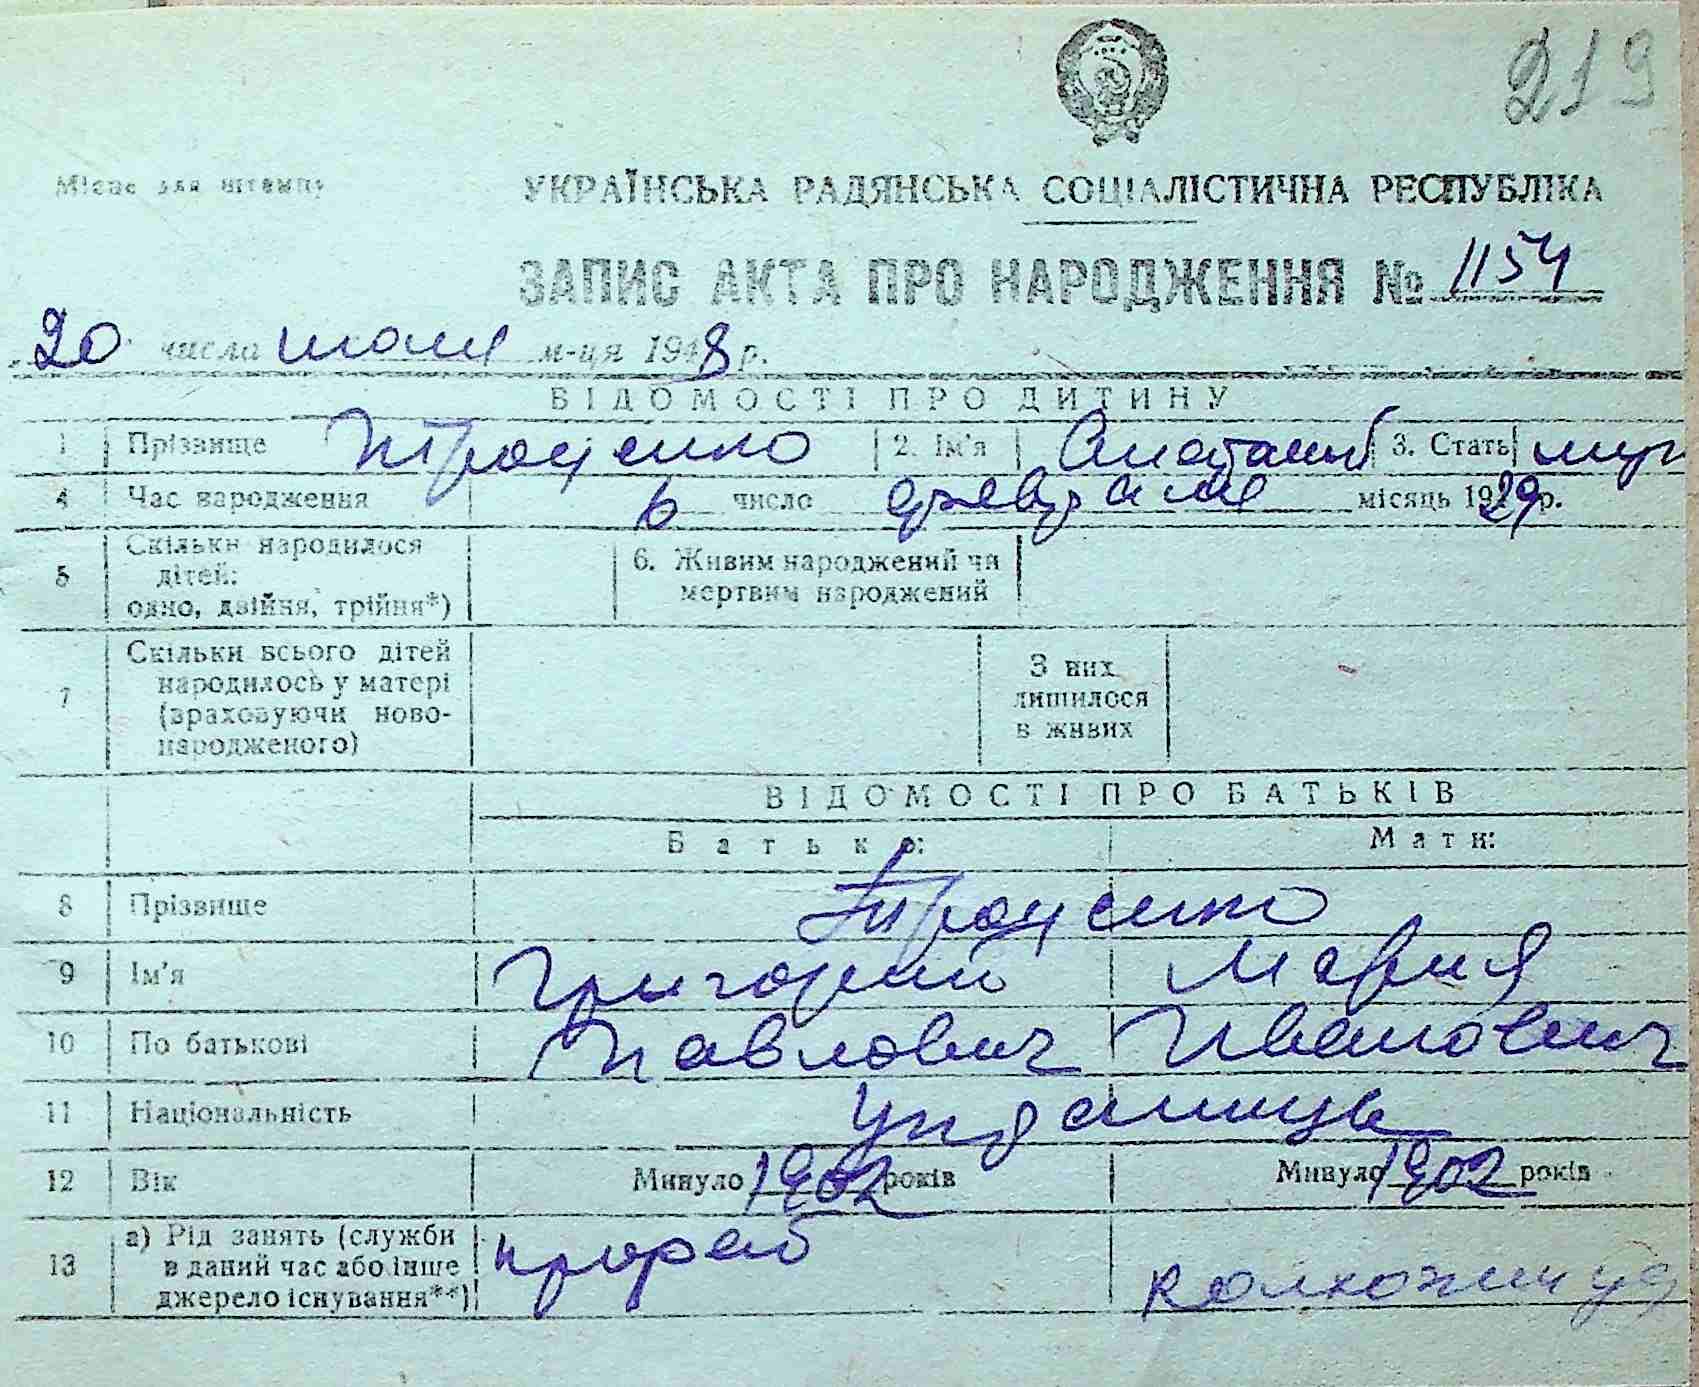 219
Місце для штампу
УКРАЇНСЬКА РАДЯНСЬКА СОЦІАЛІСТИЧНА РЕСПУБЛІКА
ЗАПИС АКТА ПРО НАРОДЖЕННЯ № 1154
20 числа июля м-ця 1948 р.
ВІДОМОСТІ ПРО ДИТИНУ
1 Прізвище Троценко 2. Ім'я Анатолий 3. Стать муж
4 Час народження 6 число февраля місяць 1929 р.
5 Скільки народилося дітей: одно, двійня, трійня*) 6. Живим народжений чи мертвим народжений
7 Скільки всього дітей народилось у матері (враховуючи новонародженого) З них лишилося в живих
ВІДОМОСТІ ПРО БАТЬКІВ
Батько: Мати:
8 Прізвище Троценко
9 Ім'я Григорий Мария
10 По батькові Павлович Иванович
11 Національність Украинцы
12 Вік Минуло 1902 років Минуло 1902 років
13 а) Рід занять (служби в даний час або інше джерело існування**) прораб колхозница